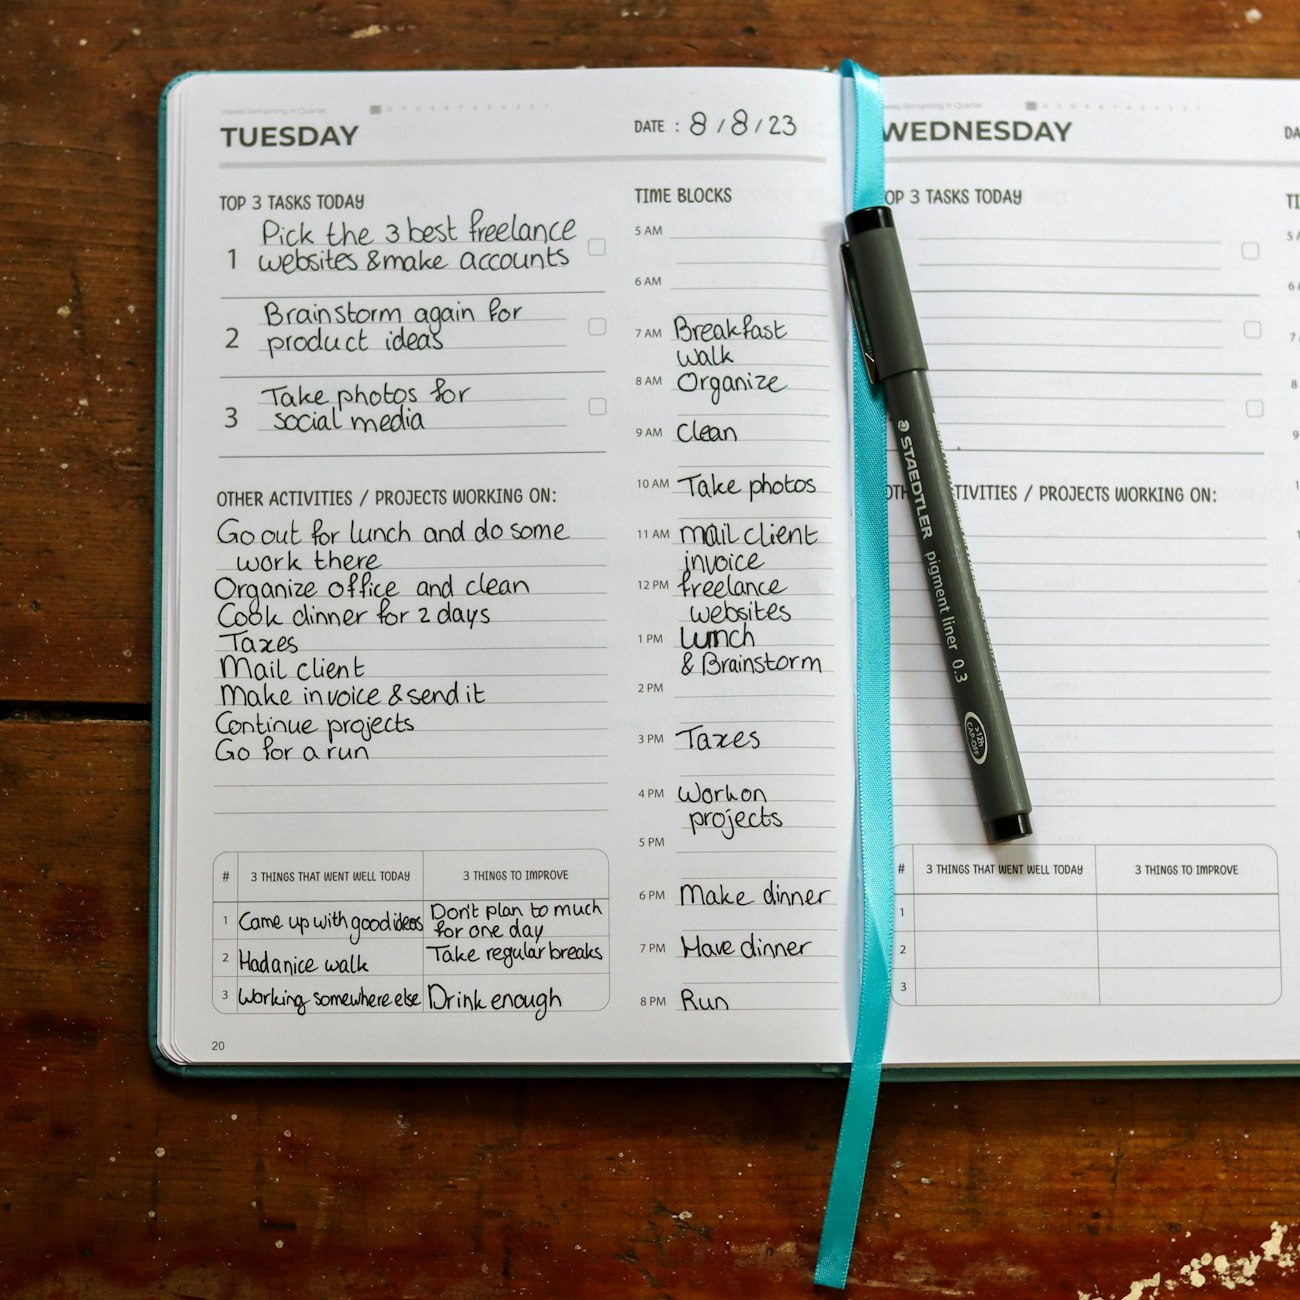 Weeks Remaining in Quarter
TUESDAY
DATE : 8 / 8 / 23
TOP 3 TASKS TODAY
1 Pick the 3 best freelance
websites & make accounts
2 Brainstorm again for
product ideas
3 Take photos for
social media
OTHER ACTIVITIES / PROJECTS WORKING ON:
Go out for lunch and do some
work there
Organize office and clean
Cook dinner for 2 days
Taxes
Mail client
Make invoice & send it
Continue projects
Go for a run
TIME BLOCKS
5 AM
6 AM
7 AM Breakfast
walk
8 AM Organize
9 AM Clean
10 AM Take photos
11 AM mail client
invoice
12 PM freelance
websites
1 PM Lunch
& Brainstorm
2 PM
3 PM Taxes
4 PM Work on
projects
5 PM
6 PM Make dinner
7 PM Have dinner
8 PM Run
# 3 THINGS THAT WENT WELL TODAY 3 THINGS TO IMPROVE
1 Came up with good ideas Don't plan to much
for one day
2 Had a nice walk Take regular breaks
3 Working somewhere else Drink enough
20
Weeks Remaining in Quarter
WEDNESDAY
DA
OP 3 TASKS TODAY
TI
OTH TIVITIES / PROJECTS WORKING ON:
# 3 THINGS THAT WENT WELL TODAY 3 THINGS TO IMPROVE
1
2
3
STAEDTLER pigment liner 0.3
>12h
CAP-OFF